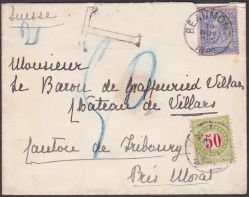 Suisse
T
BEAUMONT
50
Monsieur
Le Baron de Graffenried Villars
Château de Villars
Canton de Fribourg
Près Morat
50